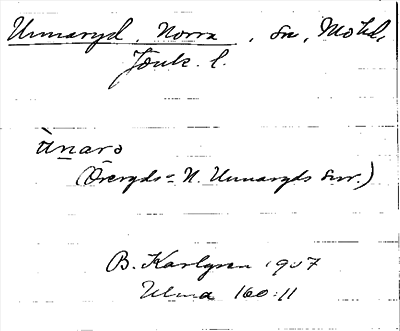 Unnaryd, Norra, sn, Mo hd,
Jönk. l.
ùnarə
(Öreryds = N. Unnaryds snr.)
B. Karlgren 1907
Ulma 160:11